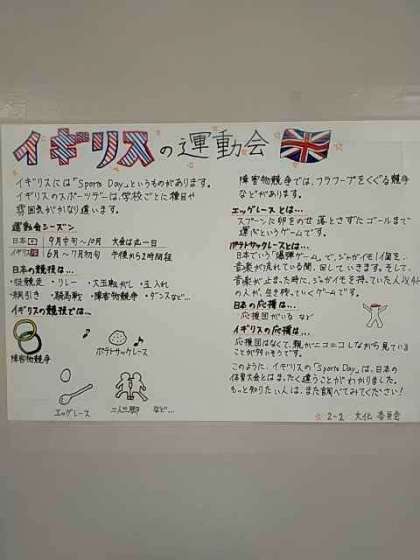 イギリスの運動会
イギリスには「Sports Day」というものがあります。
イギリスのスポーツデーは、学校ごとに種目や
雰囲気がかなり違います。
運動会シーズン
日本 9月中旬〜10月 大会は丸一日
イギリス 6月〜7月初旬 午後から2時間程
日本の競技は…
・徒競走 ・リレー ・大玉転がし ・玉入れ
・綱引き ・騎馬戦 ・障害物競争 ・ダンスなど…
イギリスの競技では…
障害物競争
ポテトサックレース
エッグレース
二人三脚 など…
障害物競争では、フラフープをくぐる競争
などがあります。
エッグレースとは…
スプーンに卵をのせ 落とさずにゴールまで
運ぶというゲームです。
ポテトサックレースとは…
日本でいう「爆弾ゲーム」で、ジャガイモ1個を、
音楽が流れている間、回していきます。そして、
音楽が止まった時に、ジャガイモを持っていた人以外
の人が、生き残っていくゲームです。
日本の応援は…
応援団がいる など
イギリスの応援は…
応援団はなくて、親がニコニコしながら見ている
ことが多いそうです。
このように、イギリスの「Sports Day」は、日本の
体育大会とはまったく違うことがわかりました。
もっと知りたい人は、また調べてみてください!
☆2-2 文化委員会